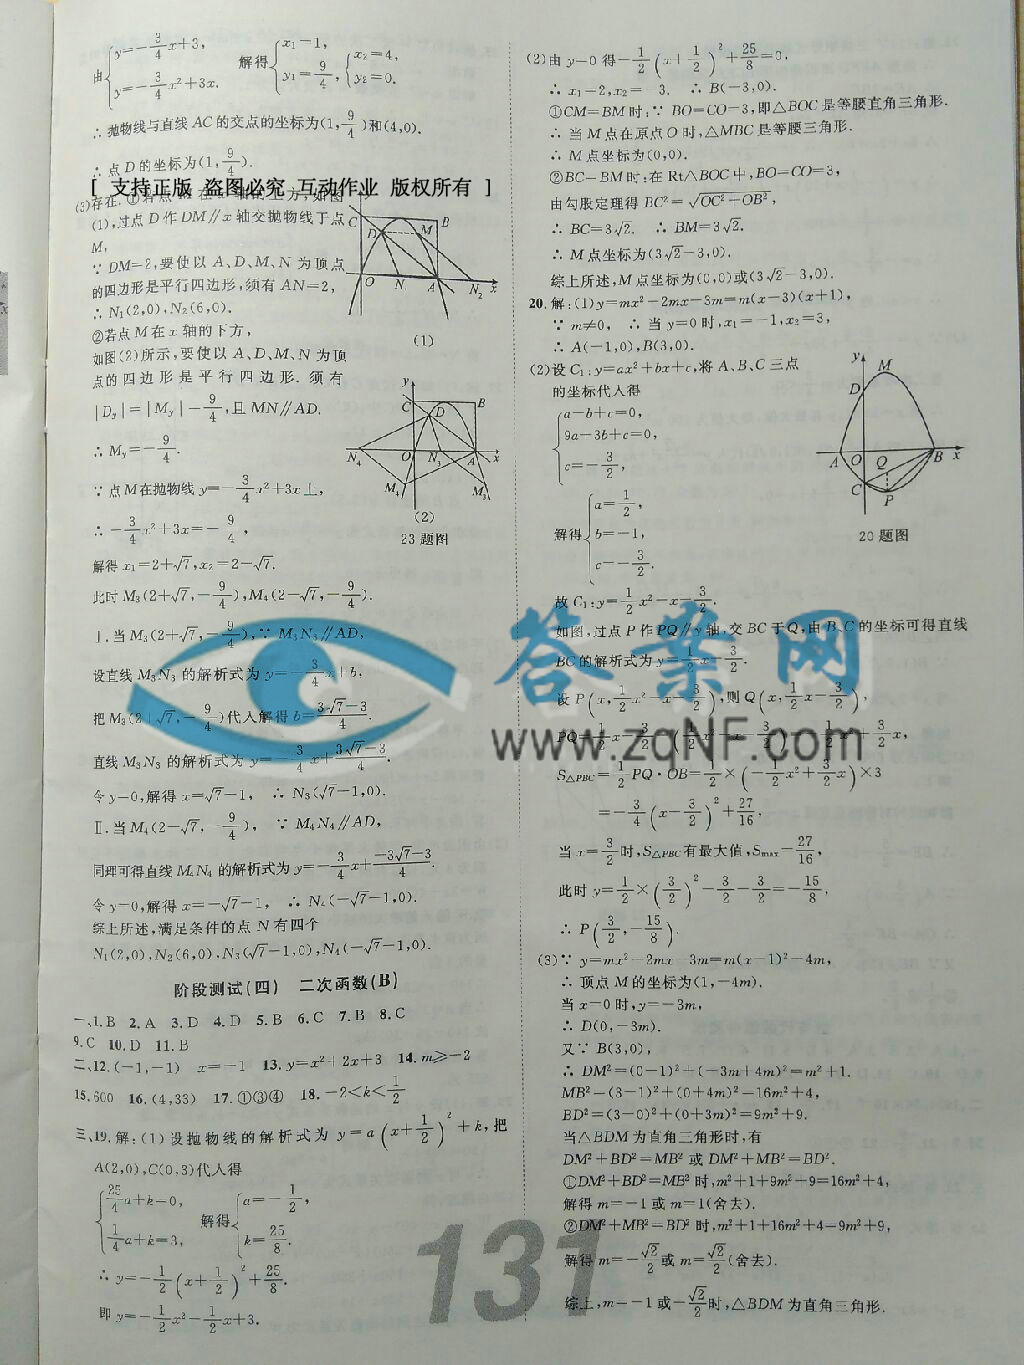 由{y=-3/4x+3, y=-3/4x²+3x. 解得{x₁=1, y₁=9/4, {x₂=4, y₂=0.
∴抛物线与直线 AC 的交点的坐标为(1,9/4)和(4,0).
∴点 D 的坐标为(1,9/4).
[ 支持正版 盗图必究 互动作业 版权所有 ]
(1),过点 D 作 DM∥x 轴交抛物线于点
M,
∵DM=2,要使以 A、D、M、N 为顶点
的四边形是平行四边形,须有 AN=2,
∴N₁(2,0),N₂(6,0).
②若点 M 在 x 轴的下方,
如图(2)所示,要使以 A、D、M、N 为顶
点的四边形是平行四边形.须有
|Dy|=|My|=9/4,且 MN∥AD.
∴My=-9/4.
∵点 M 在抛物线 y=-3/4x²+3x 上,
∴-3/4x²+3x=-9/4,
解得 x₁=2+√7,x₂=2-√7.
此时 M₃(2+√7,-9/4),M₄(2-√7,-9/4).
Ⅰ.当 M₃(2+√7,-9/4),∵M₃N₃∥AD,
设直线 M₃N₃ 的解析式为 y=-3/4x+b,
把 M₃(2+√7,-9/4)代入解得 b=(3√7-3)/4.
直线 M₃N₃ 的解析式为 y=-3/4x+(3√7-3)/4.
令 y=0,解得 x=√7-1, ∴N₃(√7-1,0).
Ⅱ.当 M₄(2-√7,-9/4), ∵M₄N₄∥AD,
同理可得直线 M₄N₄ 的解析式为 y=-3/4x+(-3√7-3)/4
令 y=0,解得 x=-√7-1, ∴N₄(-√7-1,0).
综上所述,满足条件的点 N 有四个
N₁(2,0),N₂(6,0),N₃(√7-1,0),N₄(-√7-1,0).
C D M B O N A N₂ x
(1)
y C D B N₄ O N₃ A x M₄ M₃
(2)
23 题图
阶段测试(四) 二次函数(B)
一、1.B 2.A 3.D 4.D 5.B 6.C 7.B 8.C
9.C 10.D 11.B
二、12.(-1,-1) x=-1 13.y=x²+2x+3 14.m≥-2
15.600 16.(4,33) 17.①③④ 18.-2<k<1/2
三、19.解:(1)设抛物线的解析式为 y=a(x+1/2)²+k,把
A(2,0),C(0,3)代入得
{25/4a+k=0, 1/4a+k=3, 解得{a=-1/2, k=25/8.
∴y=-1/2(x+1/2)²+25/8.
即 y=-1/2x²-1/2x+3.
(2)由 y=0 得-1/2(x+1/2)²+25/8=0,
∴x₁=2,x₂=-3. ∴B(-3,0).
①CM=BM 时:∵BO=CO=3,即△BOC 是等腰直角三角形.
∴当 M 点在原点 O 时,△MBC 是等腰三角形.
∴M 点坐标为(0,0).
②BC=BM 时:在 Rt△BOC 中,BO=CO=3,
由勾股定理得 BC²=√OC²+OB²,
∴BC=3√2. ∴BM=3√2.
∴M 点坐标为(3√2-3,0).
综上所述,M 点坐标为(0,0)或(3√2-3,0).
20.解:(1)y=mx²-2mx-3m=m(x-3)(x+1),
∵m≠0, ∴当 y=0 时,x₁=-1,x₂=3,
∴A(-1,0),B(3,0).
(2)设 C₁:y=ax²+bx+c,将 A、B、C 三点
的坐标代入得
{a-b+c=0, 9a-3b+c=0, c=-3/2,
解得{a=1/2, b=-1, c=-3/2.
y M D A O Q B x C P
20 题图
故 C₁:y=1/2x²-x-3/2.
如图,过点 P 作 PQ∥y 轴,交 BC 于 Q,由 B、C 的坐标可得直线
BC 的解析式为 y=1/2x-3/2.
设 P(x,1/2x²-x-3/2),则 Q(x,1/2x-3/2),
S△PBC=1/2PQ·OB=1/2×(-1/2x²+3/2x)×3
=-3/4(x-3/2)²+27/16,
当 x=3/2时,S△PBC有最大值,Smax=27/16,
此时 y=1/2×(3/2)²-3/2-3/2=-15/8,
∴P(3/2,-15/8).
(3)∵y=mx²-2mx-3m=m(x-1)²-4m,
∴顶点 M 的坐标为(1,-4m).
当 x=0 时,y=-3m,
∴D(0,-3m).
又∵B(3,0),
∴DM²=(0-1)²+(-3m+4m)²=m²+1.
MB²=(3-1)²+(0+4m)²=16m²+4,
BD²=(3-0)²+(0+3m)²=9m²+9.
当△BDM 为直角三角形时,有
DM²+BD²=MB² 或 DM²+MB²=BD².
①DM²+BD²=MB² 时,m²+1+9m²+9=16m²+4,
解得 m=-1 或 m=1(舍去).
②DM²+MB²=BD² 时,m²+1+16m²+4=9m²+9,
解得 m=-√2/2或 m=√2/2(舍去).
综上,m=-1 或-√2/2时,△BDM 为直角三角形.
答案网
www.zqNF.com
131